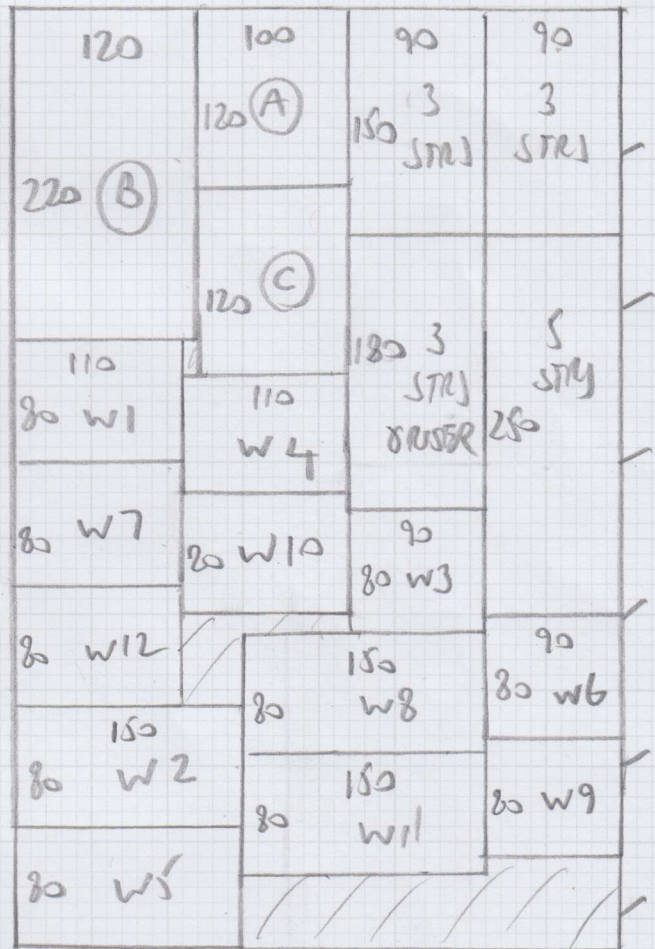 120
220 B
100
120 A
90
150 3
STRS
90
3
STRS
120 C
180 3
STRS
5
STRS
250
110
80 W1
110
W4
80 W7
80 W10
90
80 W3
80 W12
150
80 W8
90
80 W6
150
80 W2
150
80 W11
80 W9
80 W5